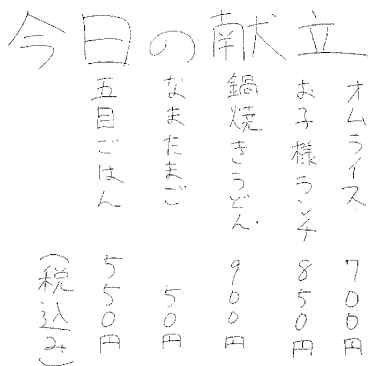 今日の献立
オムライス 700円
お子様ランチ 850円
鍋焼きうどん 900円
なまたまご 50円
五目ごはん 550円
(税込み)